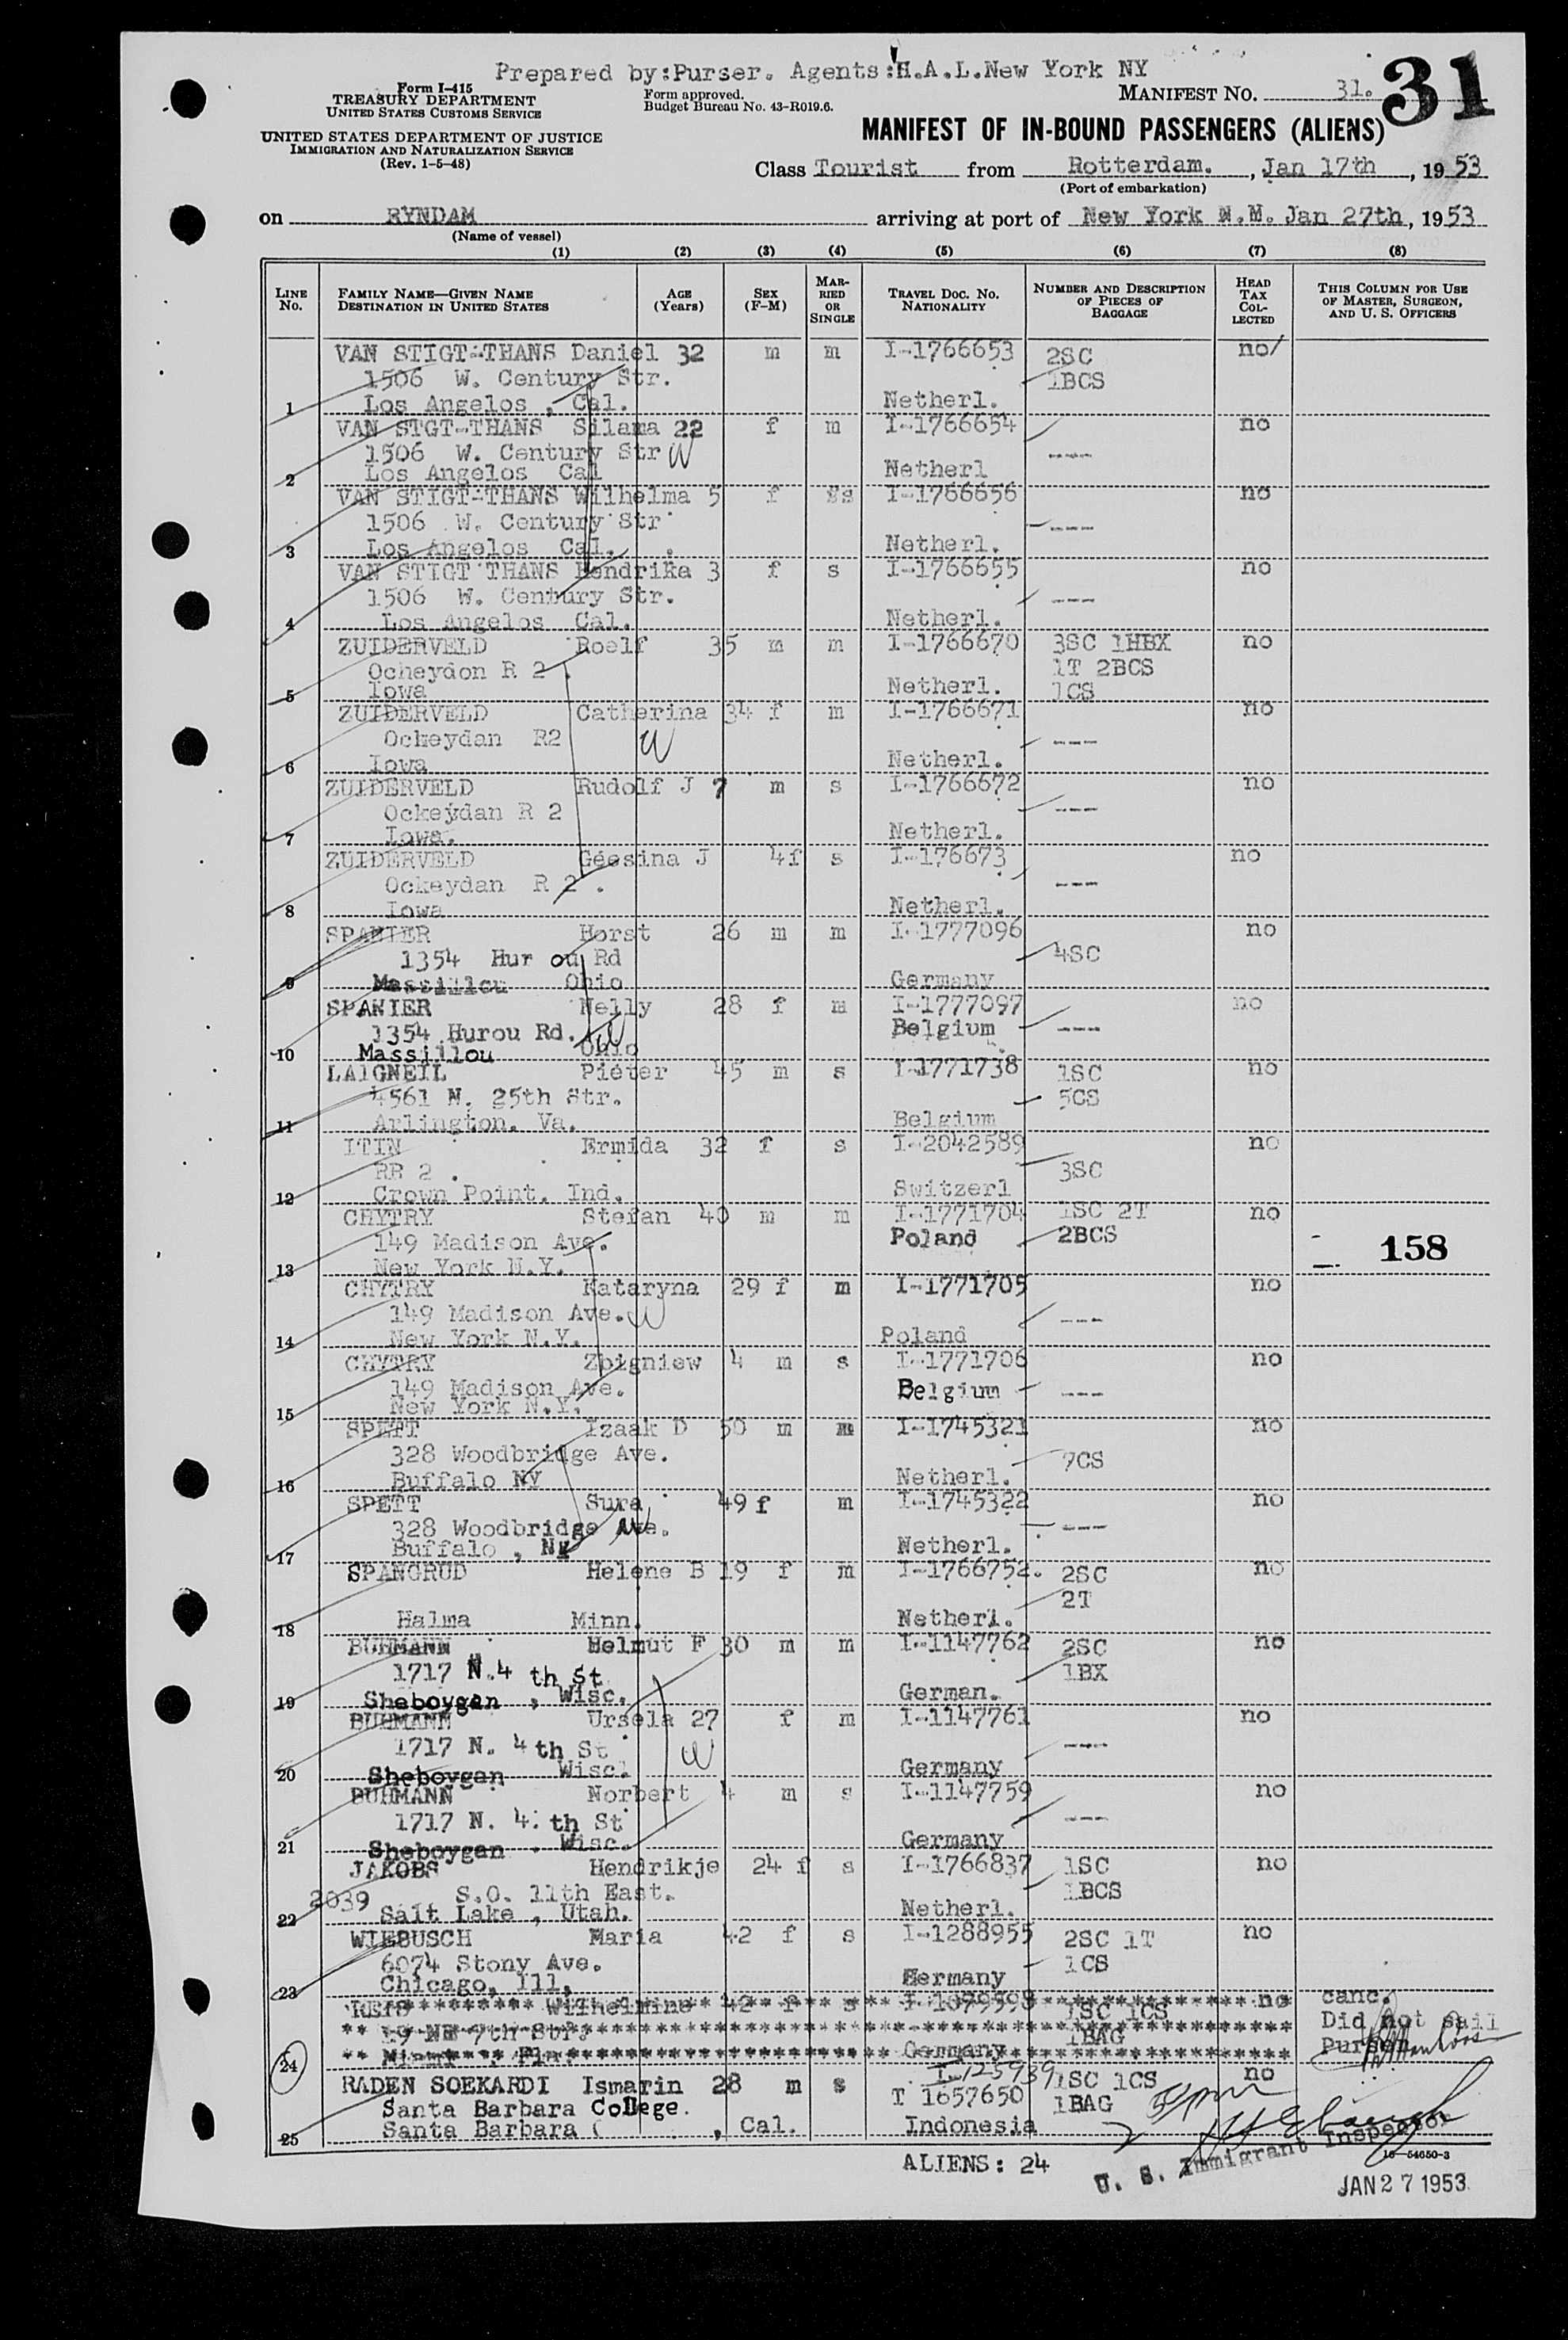 Prepared by:Purser. Agents:H.A.L.New York NY
Form I-415
TREASURY DEPARTMENT
UNITED STATES CUSTOMS SERVICE
Form approved.
Budget Bureau No. 43-R019.6.
MANIFEST NO. 31. 31
UNITED STATES DEPARTMENT OF JUSTICE
IMMIGRATION AND NATURALIZATION SERVICE
(Rev. 1-5-48)
MANIFEST OF IN-BOUND PASSENGERS (ALIENS)
Class Tourist from Rotterdam. , Jan 17th , 19 53
(Port of embarkation)
on RYNDAM arriving at port of New York N.M. Jan 27th, 19 53
(Name of vessel)
(1) (2) (3) (4) (5) (6) (7) (8)
LINE NO. FAMILY NAME—GIVEN NAME DESTINATION IN UNITED STATES AGE (Years) SEX (F-M) MARRIED OR SINGLE TRAVEL DOC. NO. NATIONALITY NUMBER AND DESCRIPTION OF PIECES OF BAGGAGE HEAD TAX COLLECTED THIS COLUMN FOR USE OF MASTER, SURGEON, AND U. S. OFFICERS
VAN STIGT-THANS Daniel 32 m m I-1766653 2SC no/
1506 W. Century Str. 1BCS
1 Los Angelos , Cal. Netherl.
VAN STGT-THANS Silama 22 f m I-1766654 no
1506 W. Century Str W ----
2 Los Angelos Cal Netherl
VAN STIGT-THANS Wilhelma 5 f s I-1766656 no
1506 W. Century Str ----
3 Los Angelos Cal. Netherl.
VAN STIGT THANS Hendrika 3 f s I-1766655 no
1506 W. Century Str. ----
4 Los Angelos Cal. Netherl.
ZUIDERVELD Roelf 35 m m I-1766670 3SC 1HBX no
Ocheydon R 2 . 1T 2BCS
5 Iowa Netherl. 1CS
ZUIDERVELD Catherina 34 f m I-1766671 no
Ockeydan R2 W ----
6 Iowa Netherl.
ZUIDERVELD Rudolf J 7 m s I-1766672 no
Ockeydan R 2 ----
7 Iowa. Netherl.
ZUIDERVELD Géesina J 4f s I-176673 no
Ockeydan R 2 . ----
8 Iowa Netherl.
SPANIER Horst 26 m m I-1777096 no
1354 Hur ou Rd 4SC
9 Massillou Ohio Germany
SPANIER Nelly 28 f m I-1777097 no
1354 Hurou Rd. W Belgium ----
10 Massillou Ohio
LAIGNEIL Piéter 45 m s I-1771738 1SC no
4561 N. 25th Str. 5CS
11 Arlington. Va. Belgium
ITIN Ermida 32 f s I-2042589 no
RR 2 . 3SC
12 Crown Point. Ind. Switzerl
CHYTRY Stefan 40 m m I-1771704 1SC 2T no
149 Madison Ave. Poland 2BCS 158
13 New York N.Y.
CHYTRY Kataryna 29 f m I-1771705 no
149 Madison Ave. W ----
14 New York N.Y. Poland
CHYTRY Zbigniew 4 m s I-1771706 no
149 Madison Ave. Belgium ----
15 New York N.Y.
SPETT Izaak D 50 m m I-1745321 no
328 Woodbridge Ave. 7CS
16 Buffalo NY Netherl.
SPETT Sura 49 f m I-1745322 no
328 Woodbridge Ave. W ----
17 Buffalo , NY Netherl.
SPANGRUD Helene B 19 f m I-1766752. 2SC no
2T
18 Halma Minn. Netherl.
BUHMANN Helmut F 30 m m I-1147762 2SC no
1717 N.4 th St 1BX
19 Sheboygan , Wisc. German.
BUHMANN Ursela 27 f m I-1147761 no
1717 N. 4 th St W ----
20 Sheboygan Wisc. Germany
BUHMANN Norbert 4 m s I-1147759 no
1717 N. 4. th St ----
21 Sheboygan , Wisc. Germany
JAKOBS Hendrikje 24 f s I-1766837 1SC no
2039 S.O. 11th East. 1BCS
22 Salt Lake , Utah. Netherl.
WIEBUSCH Maria 42 f s I-1288955 2SC 1T no
6074 Stony Ave. 1CS
23 Chicago, Ill, Germany
Wilhelmine 42 f s 1SC 1CS no canc.
19 NE 7th Str. 1BAG Did not sail
24 Miami Fla. Germany Purser
I-125939
RADEN SOEKARDI Ismarin 28 m s 1SC 1CS no
Santa Barbara College. T 1657650 1BAG
25 Santa Barbara ( , Cal. Indonesia
ALIENS: 24
U. S. Immigrant Inspector
16—54650-3
JAN 27 1953